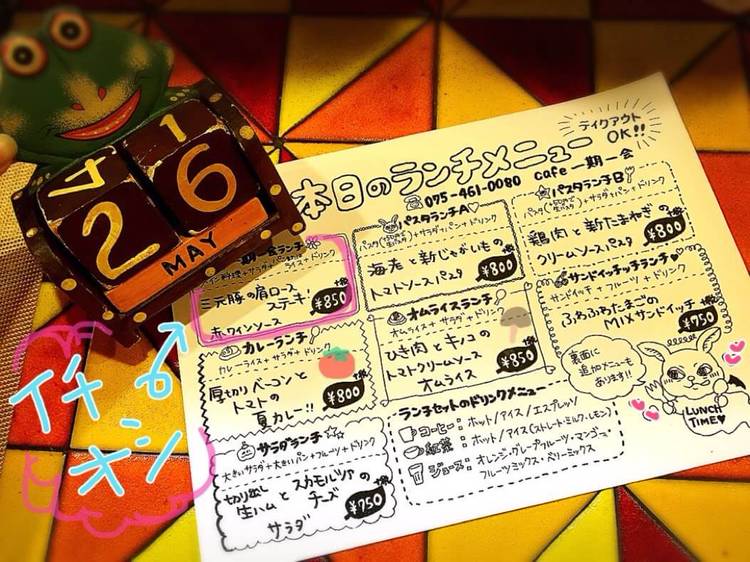 4 1
2 6
MAY
テイクアウト
OK!!
本日のランチメニュー
☎075-461-0080 cafe 一期一会
一期一会ランチ
メイン料理+サラダ+パン
ドリンク
三元豚の肩ロース
ステーキ!
赤ワインソース
¥850
パスタランチA♡
+サラダ+パン+ドリンク
海老と新じゃがいもの
トマトソースパスタ
¥800
パスタランチB
+サラダ+パン+ドリンク
鶏肉と新たまねぎの
クリームソースパスタ
¥800
カレーランチ
カレーライス+サラダ+ドリンク
厚切りベーコンと
トマトの
夏カレー!!
¥800
オムライスランチ
オムライス+サラダ+ドリンク
ひき肉とキノコの
トマトクリームソース
オムライス
¥850
サンドイッチランチ♥
サンドイッチ+フルーツ+ドリンク
ふわふわたまごの
MIXサンドイッチ
¥750
サラダランチ☆☆
大きいサラダ+大きいパン+フルーツ+ドリンク
切り出し
生ハムとスカモルツァの
チーズ
サラダ
¥750
ランチセットのドリンクメニュー
コーヒー:ホット/アイス/エスプレッソ
紅茶:ホット/アイス(ストレート・ミルク・レモン)
ジュース:オレンジ・グレープフルーツ・マンゴー
フルーツミックス・ベリーミックス
裏面に
追加メニューも
あります!!
LUNCH
TIME♥
イチ
オシ